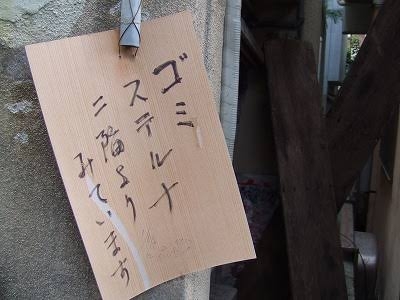 ゴミ
ステルナ
二階より
みています